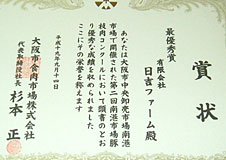 賞状
最優秀賞
有限会社
日吉ファーム殿
あなたは大阪市中央卸売市場南港
市場で開催された第二回南港市場豚
枝肉コンクールにおいて頭書のとお
り優秀な成績を収められました
ここにその栄誉を称えます
平成十九年九月十四日
大阪市食肉市場株式会社
代表取締役社長
杉本正